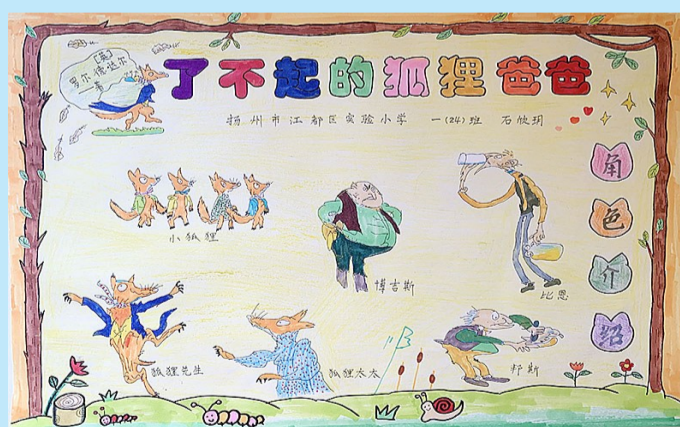 [英]
罗尔德·达尔
著
了不起的狐狸爸爸
扬州市江都区实验小学 一(24)班 石欣玥
角色介绍
小狐狸
博吉斯
比恩
狐狸先生
狐狸太太
邦斯